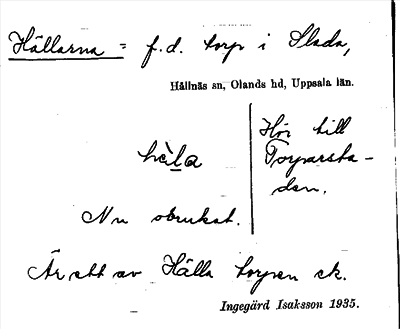 Hällarna = f.d. torp i Slada,
Hållnäs sn, Olands hd, Uppsala län.
hè̀la
Hör till
Torparsta-
den.
Nu obrukat.
Är ett av Hälla torpen ek.
Ingegärd Isaksson 1935.